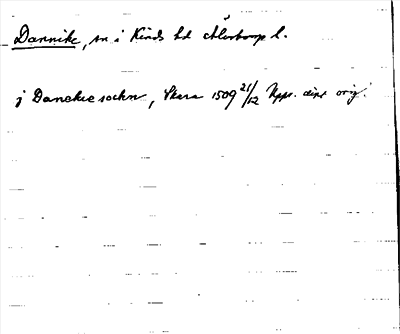 Dannike, sn i Kinds hd Älvsborgs l.
j Danekie sokn, Skara 1509 21/12 Upps. dipl orig.